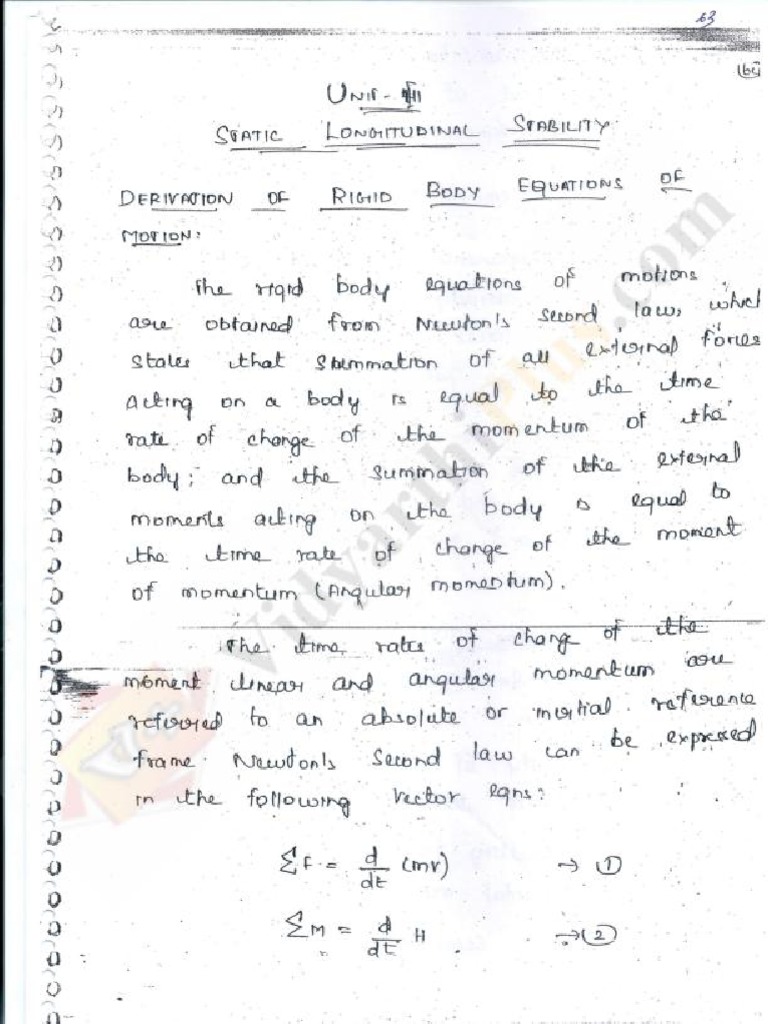 63
UNIT - III
STATIC LONGITUDINAL STABILITY
DERIVATION OF RIGID BODY EQUATIONS OF
MOTION:
The rigid body equations of motions
are obtained from Newton's second law, which
states that summation of all external forces
Acting on a body is equal to the time
rate of change of the momentum of the
body; and the summation of the external
moments acting on the body is equal to
the time rate of change of the moment
of momentum (Angular momentum).
The time rates of change of the
moment linear and angular momentum are
referred to an absolute or inertial reference
frame. Newton's second law can be expressed
in the following vector eqns:
ΣF = d/dt (mv) → ①
ΣM = d/dt H → ②
VidyarthiPlus.com